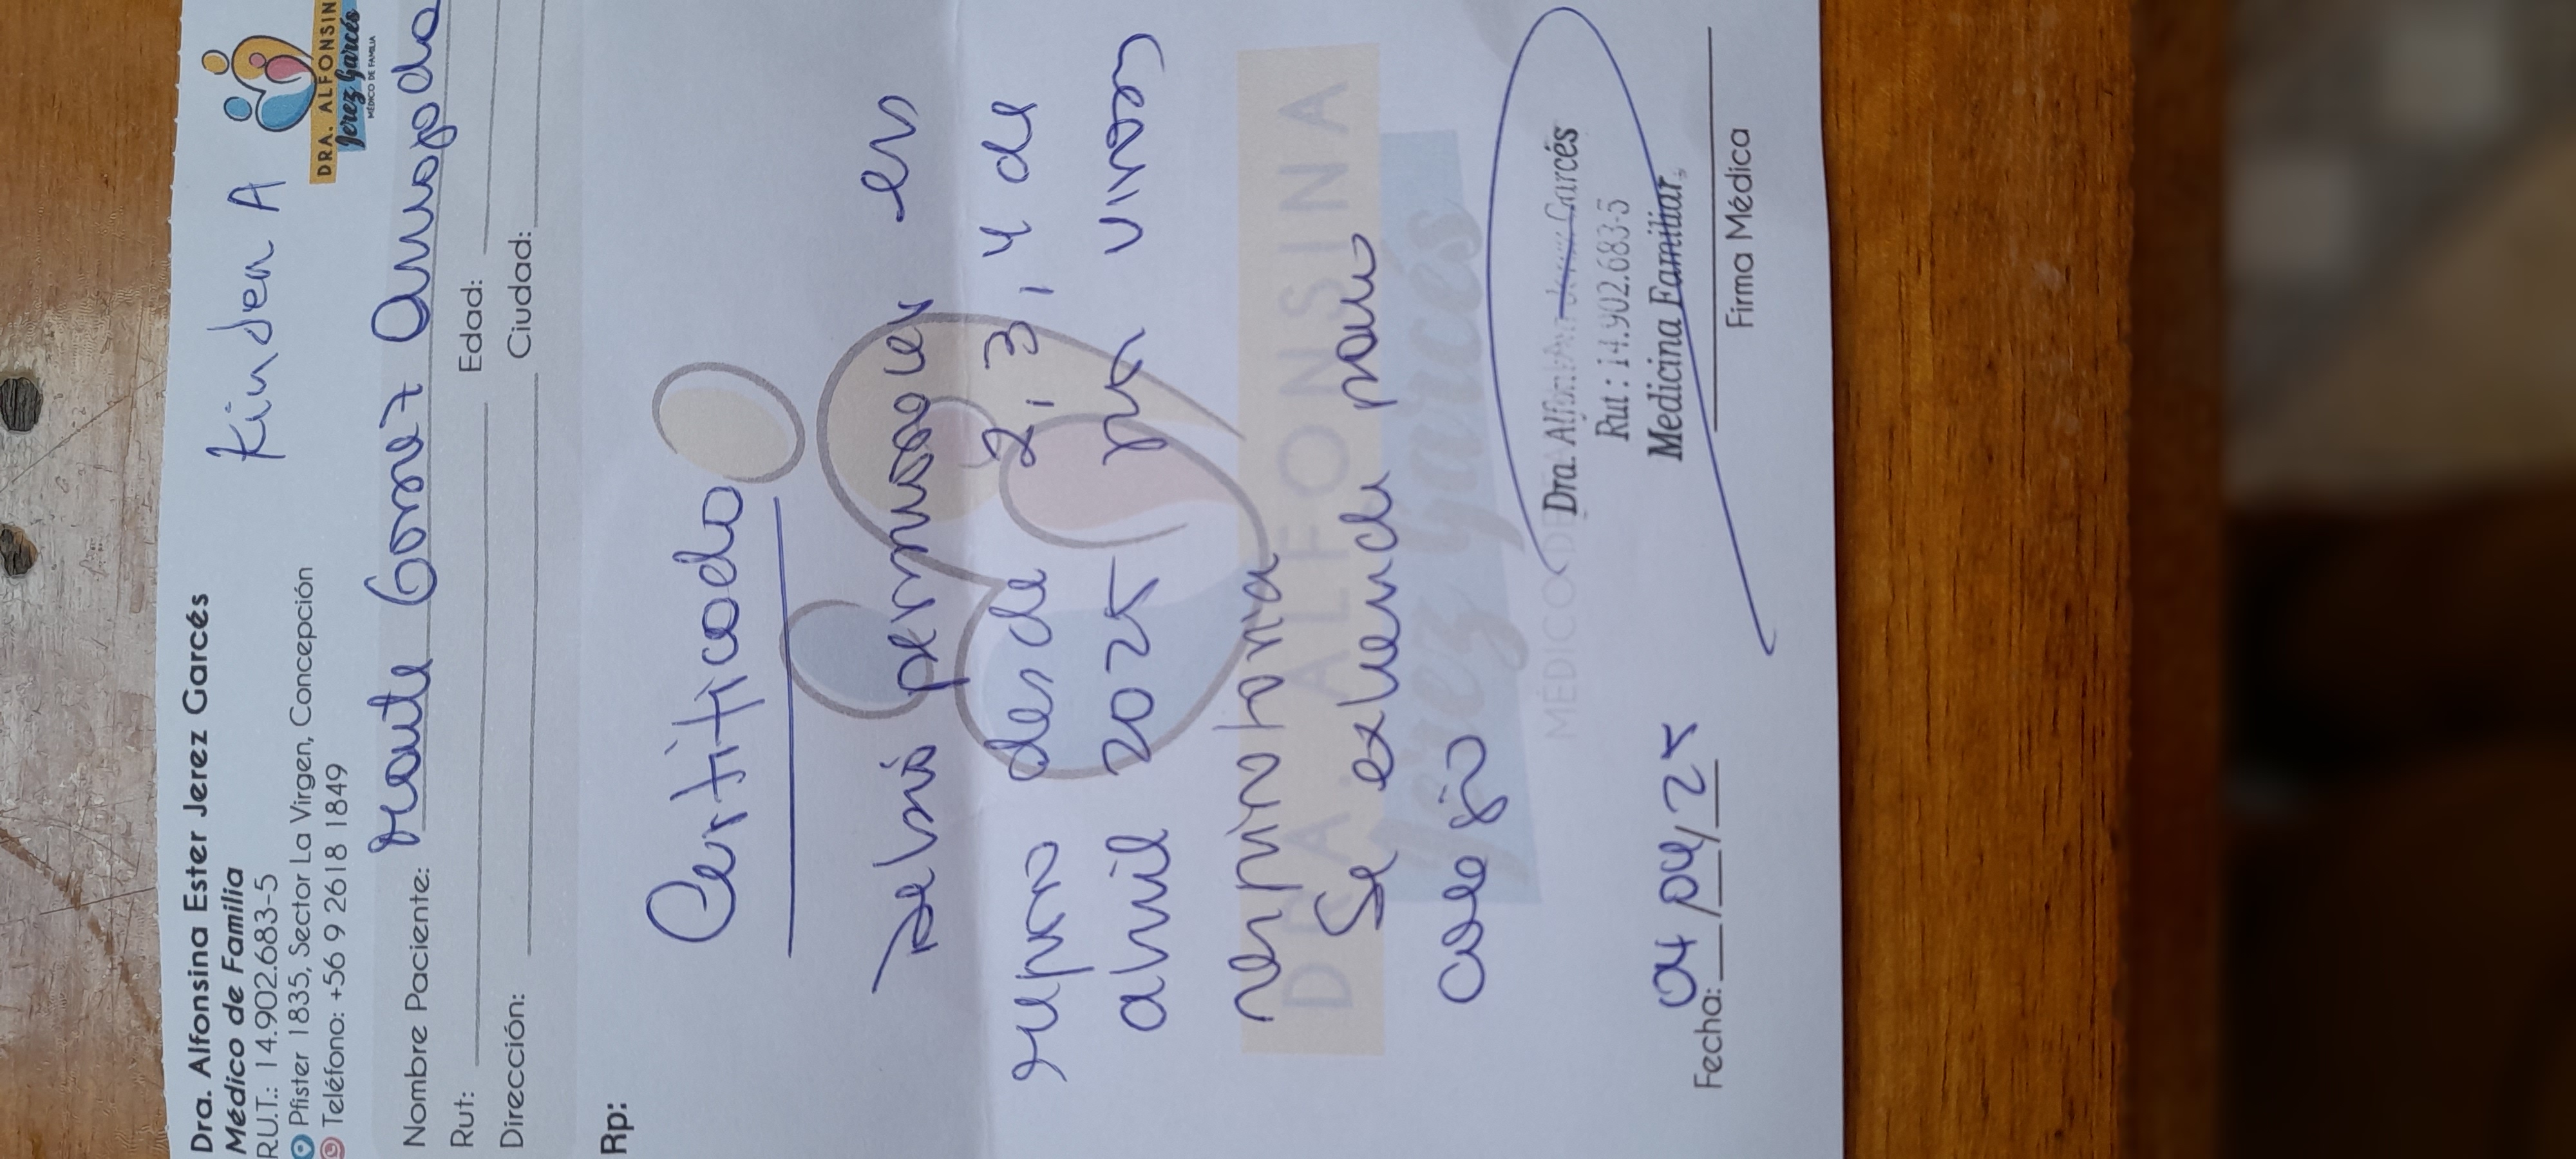 Dra. Alfonsina Ester Jerez Garcés
Médico de Familia
R.U.T.: 14.902.683-5
Pfister 1835, Sector La Virgen, Concepción
Teléfono: +56 9 2618 1849
Kinder A
DRA. ALFONSIN
Jerez Garcés
MÉDICO DE FAMILIA
Nombre Paciente: Gomez
Rut: Edad:
Dirección: Ciudad:
Rp:
Certificado
Debió permanecer en
reposo desde 2, 3, 4 de
abril 2025 por virosis
respiratoria
Se extiende para
colegio
DRA. ALFONSINA
Jerez Garcés
MÉDICO DE
Dra. Garcés
Rut : 14.902.683-5
Medicina Familiar
Fecha: 04/04/25
Firma Médica